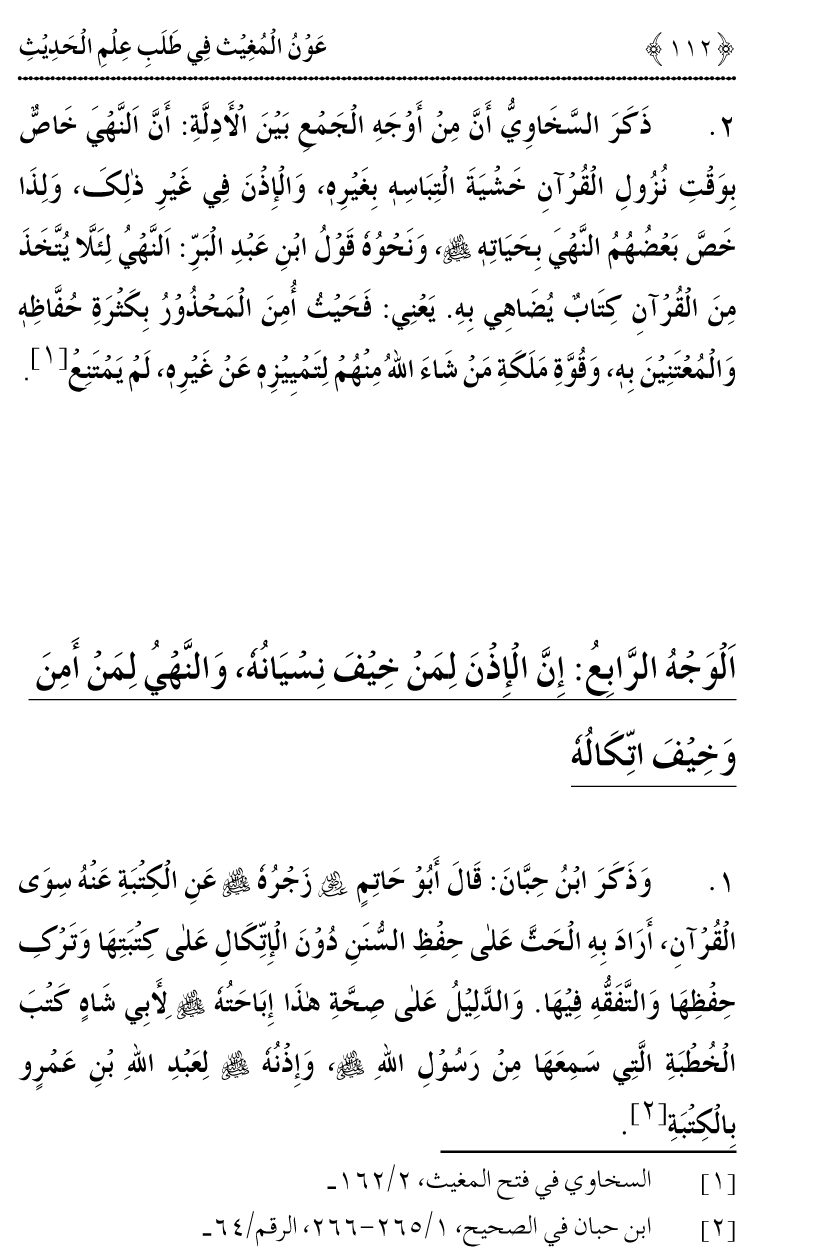 ﴿١١٢﴾ عَوْنُ الْمُغِيْث فِي طَلَبِ عِلْمِ الْحَدِيْثِ
٢. ذَكَرَ السَّخَاوِيُّ أَنَّ مِنْ أَوْجَهِ الْجَمْعِ بَيْنَ الْأَدِلَّةِ: أَنَّ اَلنَّهْيَ خَاصٌّ
بِوَقْتِ نُزُولِ الْقُرْآنِ خَشْيَةَ الْتِبَاسِهٖ بِغَيْرِهٖ، وَالْإِذْنَ فِي غَيْرِ ذٰلِکَ، وَلِذَا
خَصَّ بَعْضُهُمُ النَّهْيَ بِحَيَاتِهٖ ﷺ، وَنَحْوُهٗ قَوْلُ ابْنِ عَبْدِ الْبَرِّ: اَلنَّهْيُ لِئَلَّا يُتَّخَذَ
مِنَ الْقُرْآنِ كِتَابٌ يُضَاهِي بِهِ. يَعْنِي: فَحَيْثُ أُمِنَ الْمَحْذُوْرُ بِكَثْرَةِ حُفَّاظِهٖ
وَالْمُعْتَنِيْنَ بِهٖ، وَقُوَّةِ مَلَكَةِ مَنْ شَاءَ اللهُ مِنْهُمْ لِتَمْيِيْزِهٖ عَنْ غَيْرِهٖ، لَمْ يَمْتَنِعْ[١].
اَلْوَجْهُ الرَّابِعُ: إِنَّ الْإِذْنَ لِمَنْ خِيْفَ نِسْيَانُهٗ، وَالنَّهْيُ لِمَنْ أَمِنَ
وَخِيْفَ اتِّكَالُهٗ
١. وَذَكَرَ ابْنُ حِبَّانَ: قَالَ أَبُوْ حَاتِمٍ زَجْرُهٗ ﷺ عَنِ الْكِتْبَةِ عَنْهُ سِوَى
الْقُرْآنِ، أَرَادَ بِهِ الْحَثَّ عَلٰى حِفْظِ السُّنَنِ دُوْنَ الْاِتِّكَالِ عَلٰى كِتْبَتِهَا وَتَرْکِ
حِفْظِهَا وَالتَّفَقُّهِ فِيْهَا. وَالدَّلِيْلُ عَلٰى صِحَّةِ هٰذَا إِبَاحَتُهٗ ﷺ لِأَبِي شَاهٍ كَتْبَ
الْخُطْبَةِ الَّتِي سَمِعَهَا مِنْ رَسُوْلِ اللهِ ﷺ، وَإِذْنُهٗ ﷺ لِعَبْدِ اللهِ بْنِ عَمْرٍو
بِالْكِتْبَةِ[٢].
[١] السخاوي في فتح المغيث، ٢/ ١٦٢ـ
[٢] ابن حبان في الصحيح، ١/ ٢٦٥-٢٦٦، الرقم/ ٦٤ـ